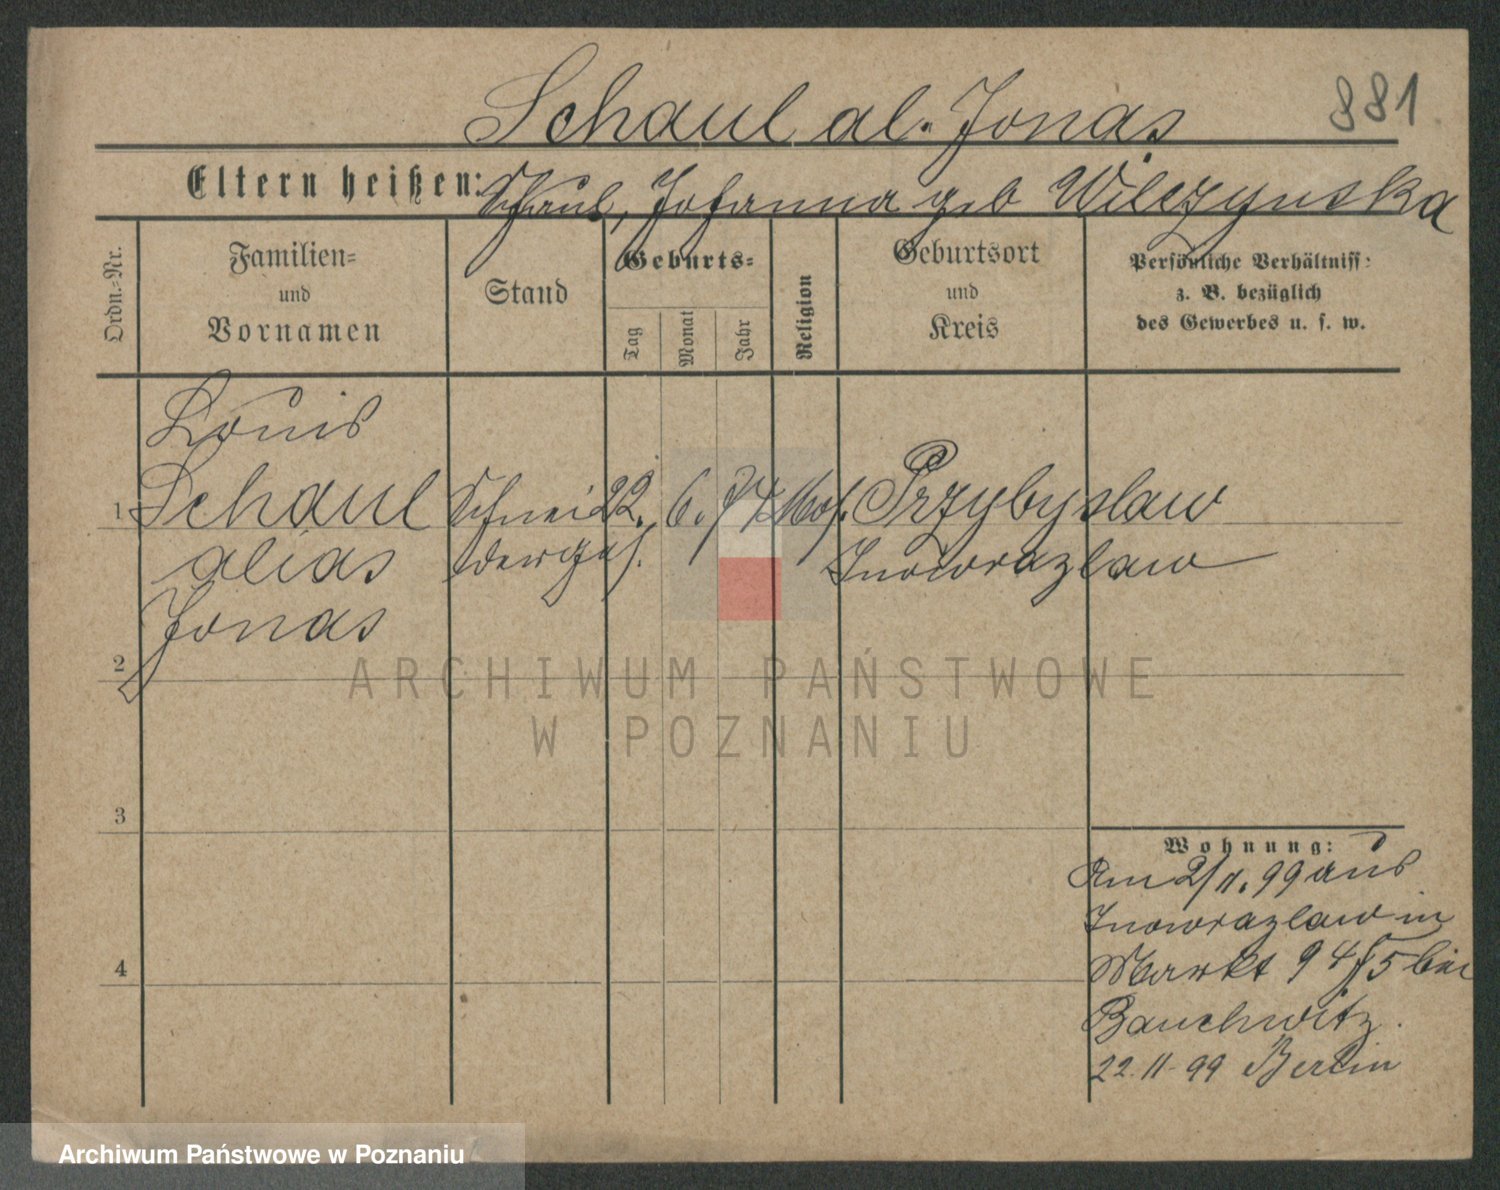 881
Schaul al. Jonas
Eltern heißen: Schaul, Johanna geb Wilczynska
Ordn.-Nr.
Familien-
und
Vornamen
Stand
Geburts-
Tag
Monat
Jahr
Religion
Geburtsort
und
Kreis
Persönliche Verhältniss:
z. B. bezüglich
des Gewerbes u. s. w.
Louis
1 Schaul Schnei 22. 6. 74 Mos. Przybyslaw
alias derges. Inowrazlaw
Jonas
2
ARCHIWUM PAŃSTWOWE
W POZNANIU
3
Wohnung:
Am 2/11. 99 aus
Inowrazlaw in
Markt 94/5 bei
4
Bauchwitz.
22.11-99 Berlin
Archiwum Państwowe w Poznaniu